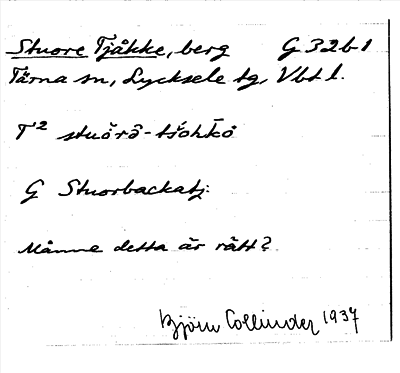 Stuore Tjåkke, berg G 32b1
Tärna sn, Lycksele tg, Vbt l.
T² stuŏrə̂-tśohkō
G Stuorbackatj.
Månne detta är rätt?
Björn Collinder 1937